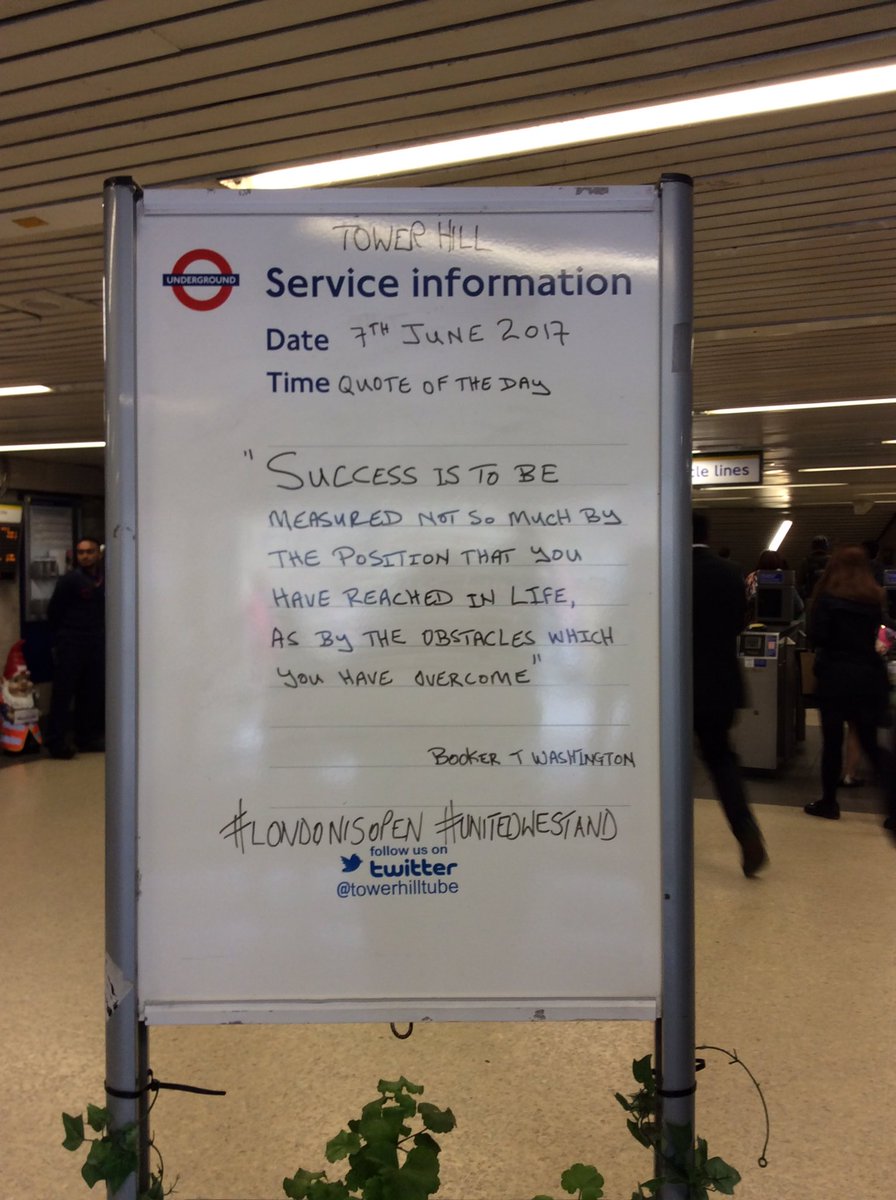 TOWER HILL
UNDERGROUND
Service information
Date 7TH JUNE 2017
Time QUOTE OF THE DAY
"SUCCESS IS TO BE
MEASURED NOT SO MUCH BY
THE POSITION THAT YOU
HAVE REACHED IN LIFE,
AS BY THE OBSTACLES WHICH
YOU HAVE OVERCOME"
BOOKER T WASHINGTON
#LONDONISOPEN #UNITEDWESTAND
follow us on
twitter
@towerhilltube
cle lines